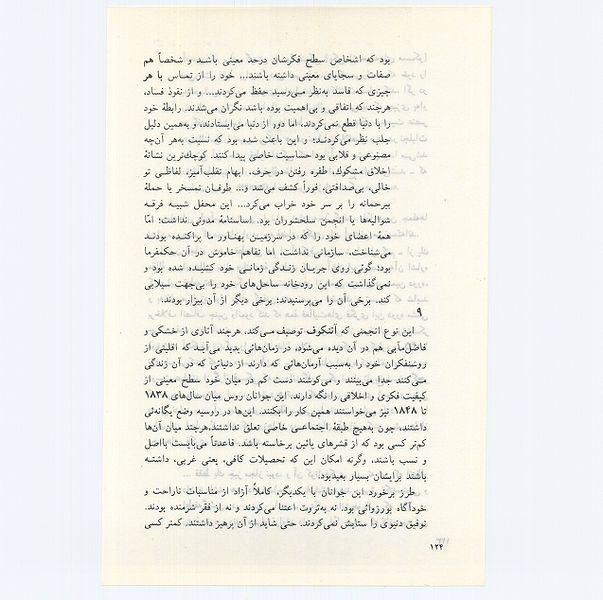 بود که اشخاص سطح فکرشان درحد معینی باشد و شخصاً هم
صفات و سجایای معینی داشته باشند... خود را از تماس با هر
چیزی که فاسد به‌نظر می‌رسید حفظ می‌کردند... و از نفوذ فساد،
هرچند که اتفاقی و بی‌اهمیت بوده باشد نگران می‌شدند. رابطهٔ خود
را با دنیا قطع نمی‌کردند، اما دور از دنیا می‌ایستادند، و به‌همین دلیل
جلب نظر می‌کردند؛ و این باعث شده بود که نسبت به‌هر آن‌چه
مصنوعی و قلابی بود حساسیت خاصی پیدا کنند. کوچك‌ترین نشانهٔ
اخلاق مشکوك، طفره رفتن در حرف، ابهام تقلب‌آمیز، لفاظی تو
خالی، بی‌صداقتی، فوراً کشف می‌شد و... طوفان تمسخر یا حملهٔ
بیرحمانه را بر سر خود خراب می‌کرد... این محفل شبیه فرقه
شوالیه‌ها یا انجمن سلحشوران بود. اساسنامهٔ مدونی نداشت؛ امّا
همهٔ اعضای خود را که در سرزمین پهناور ما پراکنده بودند
می‌شناخت، سازمانی نداشت، اما تفاهم خاموش در آن حکمفرما
بود؛ گوئی روی جریان زندگی زمانی خود کشیده شده بود و
نمی‌گذاشت که این رودخانه ساحل‌های خود را بی‌جهت سیلابی
کند. برخی آن را می‌پرستیدند؛ برخی دیگر از آن بیزار بودند.
۹
این نوع انجمنی که آننکوف توصیف می‌کند، هرچند آثاری از خشکی و
فاضل‌مآبی هم در آن دیده می‌شود، در زمان‌هائی پدید می‌آید که اقلیتی از
روشنفکران خود را به‌سبب آرمان‌هائی که دارند از دنیائی که در آن زندگی
می‌کنند جدا می‌بینند و می‌کوشند دست کم در میان خود سطح معینی از
کیفیت فکری و اخلاقی را نگه دارند. این جوانان روس میان سال‌های ۱۸۳۸
تا ۱۸۴۸ نیز می‌خواستند همین کار را بکنند. این‌ها در روسیه وضع یگانه‌ئی
داشتند، چون به‌هیچ طبقهٔ اجتماعی خاصی تعلق نداشتند،هرچند میان آن‌ها
کم‌تر کسی بود که از قشرهای پائین برخاسته باشد. قاعدتاً می‌بایست بااصل
و نسب باشند، وگرنه امکان این که تحصیلات کافی، یعنی غربی، داشته
باشند برایشان بسیار بعیدبود.
طرز برخورد این جوانان با یکدیگر، کاملاً آزاد از مناسبات ناراحت و
خودآگاه بورژوائی بود. نه به‌ثروت اعتنا می‌کردند و نه از فقر شرمنده بودند.
توفیق دنیوی را ستایش نمی‌کردند. حتی شاید از آن پرهیز داشتند. کمتر کسی
۱۲۴